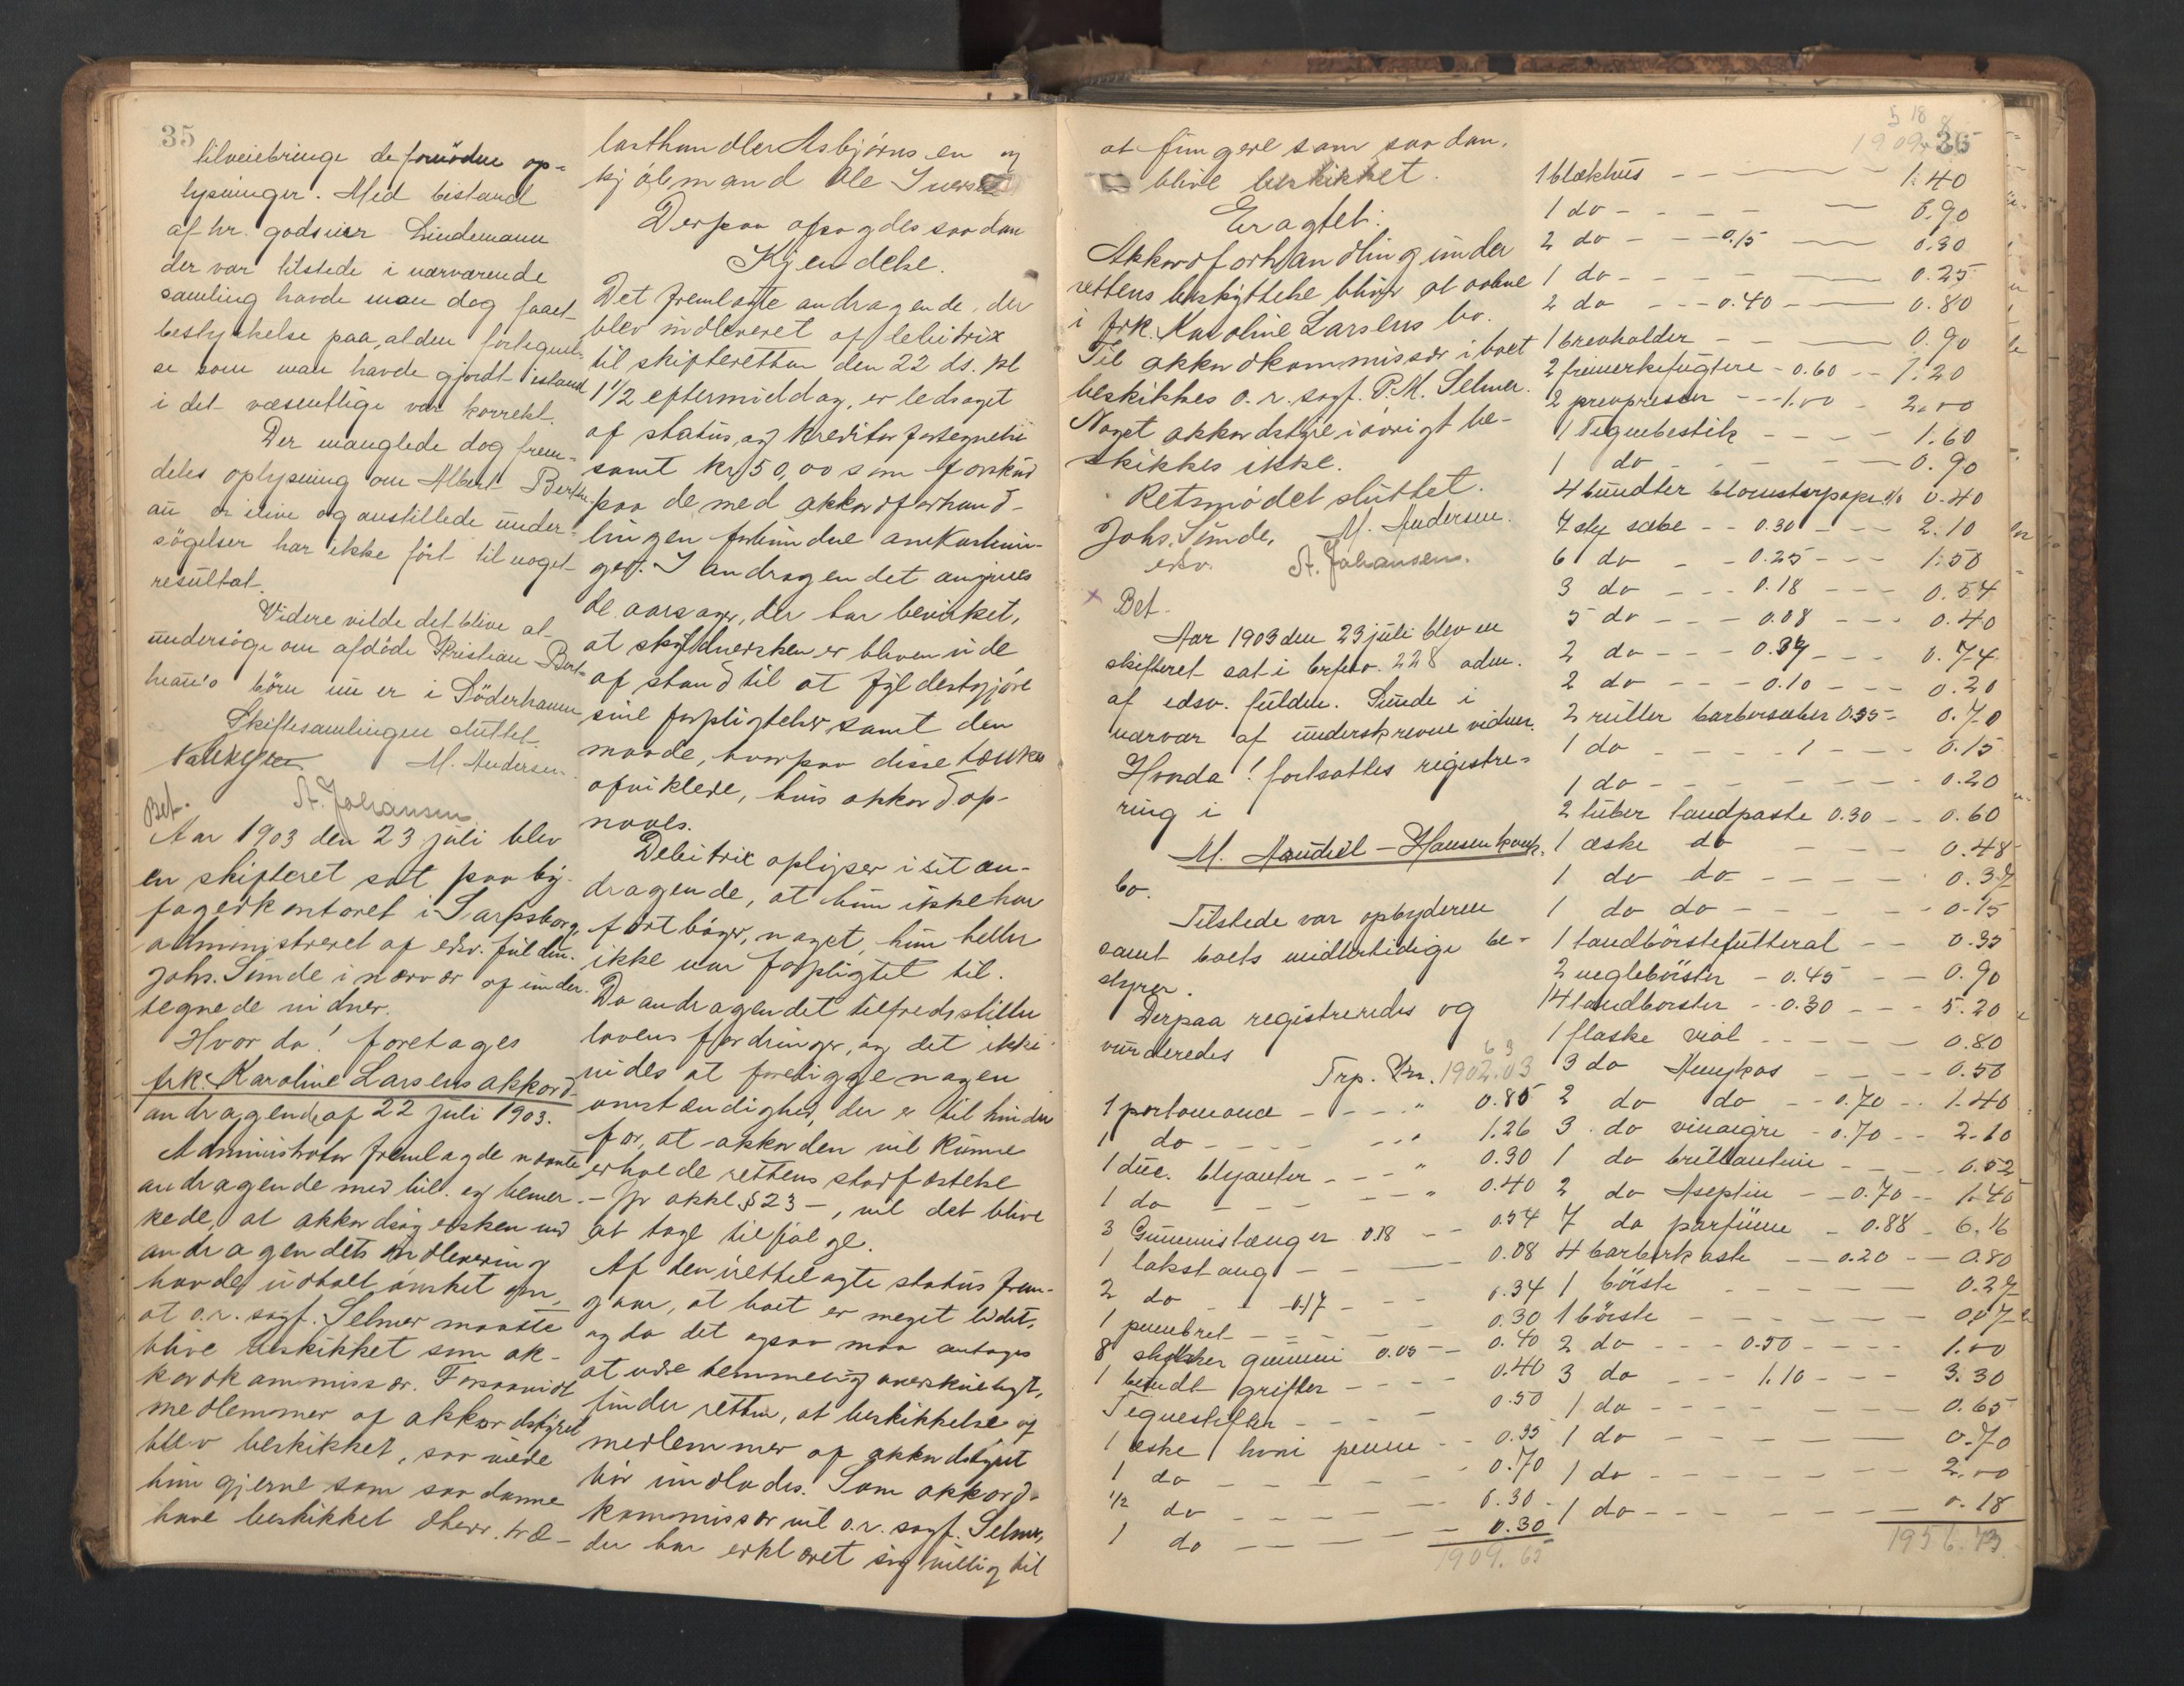 35
tilveiebringe de fornødne op-
lysninger. Med bistand
af hr. godseier Lindemann
der var tilstede i nærværende
samling havde man dog faaet
bestyrkelse paa, at den fortegnel-
se som man havde gjordt istand
i det væsentlige var korrekt.
Der manglede dog frem-
deles oplysning om Albert
er ilive og anstillede under-
søgelser har ikke ført til noget
resultat.
Videre vilde det blive at
undersøge om afdøde Kristian
børn nu er i Söderhamn
Skiftesamlingen sluttet.
M. Andersen.
A. Johansen.
Bet.
Aar 1903 den 23 juli blev
en skifteret sat paa by-
fogedkontoret i Sarpsborg,
administreret af edsv. fuldm.
Johs. Sunde i nærvær af under-
tegnede vidner.
Hvor da! foretages
frk. Karoline Larsens akkord-
andragende af 22 juli 1903.
Administrator fremlagde nævnte
andragende med bil. og bemer-
kede, at akkordsøgersken ved
andragendets indlevering
havde udtalt ønsket om,
at o.r. sagf. Selmer maatte
blive beskikket som ak-
kordkommissær. Forsaavidt
medlemmer af akkordstyret
blev beskikket, saa vilde
hun gjerne som saadanne
have beskikket dherr. træ-
lasthandler Asbjørnsen og
kjøbmand Ole Iversen
Derpaa afsagdes saadan
Kjendelse.
Det fremlagte andragende, der
blev indleveret af debitrix
til skifteretten den 22 ds. kl
1 1/2 eftermiddag, er ledsaget
af status og kreditorfortegnelse
samt kr. 50,00 som forskud
paa de med akkordforhand-
lingen forbundne omkostnin-
ger. I andragendet angives
de aarsager, der har bevirket,
at skyldnersken er bleven ude
af stand til at fyldestgjøre
sine forpligtelser samt den
maade, hvorpaa disse tænkes
afviklede, hvis akkord op-
naaes.
Debitrix oplyser i sit an-
dragende, at hun ikke har
ført bøger, noget, hun heller
ikke var forpligtet til.
Da andragendet tilfredsstiller
lovens fordringer, og det ikke
vides at foreligge nogen
omstændighed, der er til hinder
for, at akkorden vil kunne
erholde rettens stadfæstelse
- jfr akkl. § 23 -, vil det blive
at tage tilfølge.
Af den irettelagte status frem-
gaar, at boet er meget lidet,
og da det ogsaa maa antages
at være temmelig oversigtligt,
finder retten, at beskikkelse af
medlemmer af akkordstyret
bør undlades. Som akkord-
kommissær vil o.r. sagf. Selmer,
der har erklæret sig villig til
at fungere som saadan,
blive beskikket.
Eragtet:
Akkordforhandling under
rettens beskyttelse bliver at aabne
i frk. Karoline Larsens bo.
Til akkordkommissær i boet
beskikkes o.r. sagf. P.M. Selmer.
Noget akkordstyre iøvrigt be-
skikkes ikke.
Retsmødet sluttet.
Johs. Sunde, M. Andersen.
edsv. A. Johansen.
Bet.
Aar 1903 den 23 juli blev en
skifteret sat i brfsto. 228 adm.
af edsv. fuldm. Sunde i
nærvær af underskrevne vidner.
Hvorda! fortsattes registre-
ring i
M. Hansen konk.
bo.
Tilstede var opbyderen
samt boets midlertidige be-
styrer.
Derpaa registreredes og
vurderedes
Trp. Kr. 1902.03
1 portemonæ - - - - " 0.85
1 do - - - - 1.26
1 dus. blyanter - - - " 0.30
1 do - - - " 0.40
3 Gummislænger 0.18 - - 0.54
1 lakstang - - - 0.08
2 do - - 0.17 - - 0.34
1 pennebret - - - 0.30
8 stykker gummi 0.05 - 0.40
1 bundt grifter - - - - 0.40
Tegnestifter - - - - 0.50
1 æske penne - - 0.35
1 do - - - - 0.70
1/2 do - - - - 0.30
1 do - - - - 0.30
1909.65
36
1 blækhus - - - 1.40
1 do - - - - 0.90
2 do - - 0.15 - 0.30
1 do - - - - 0.25
2 do - - - 0.40 - 0.80
1 brevholder - - - 0.90
2 frimerkefugtere - 0.60 - - 1.20
2 brevpresser - - - 1.00 - 2.00
1 Tegnebestik - - - - 1.60
1 do - - - - 0.90
4 bundter blomsterpapir 0.40
7 sty sæbe - - 0.30 - - - 2.10
6 do - - 0.25 - - - 1.50
3 do - - - 0.18 - - - 0.54
5 do - - - 0.08 - - - 0.40
2 do - - - 0.37 - - - 0.74
2 do - - - 0.10 - - - 0.20
2 ruller barbersæber 0.35 - 0.70
1 do - - - - 0.15
1 do - - - - 0.20
2 tuber tandpasta 0.30 - - 0.60
1 æske do - - - - 0.48
1 do do - - - - 0.37
1 do do - - - - 0.15
1 tandbørstefutteral - - 0.35
2 neglebørster - 0.45 - - 0.90
14 tandbørster - - 0.30 - - - 5.20
1 flaske viol - - - - - 0.80
3 do - - - - 0.50
2 do do - - 0.70 - - 1.40
3 do vinaigre - 0.70 - - 2.10
1 do brillantine - - - - 0.52
2 do Aseptin - - 0.70 - - 1.40
7 do parfüme - 0.88 - 6.16
4 barberkoste - - 0.20 - - 0.80
1 børste - - - - 0.27
1 børste - - - - 0.07
2 do - - - 0.50 - - - - 1.00
3 do - - - 1.10 - - - 3.30
1 do - - - - 0.65
1 do - - - - 0.70
1 do - - - - 2.00
1 do - - - - 0.18
1956.73